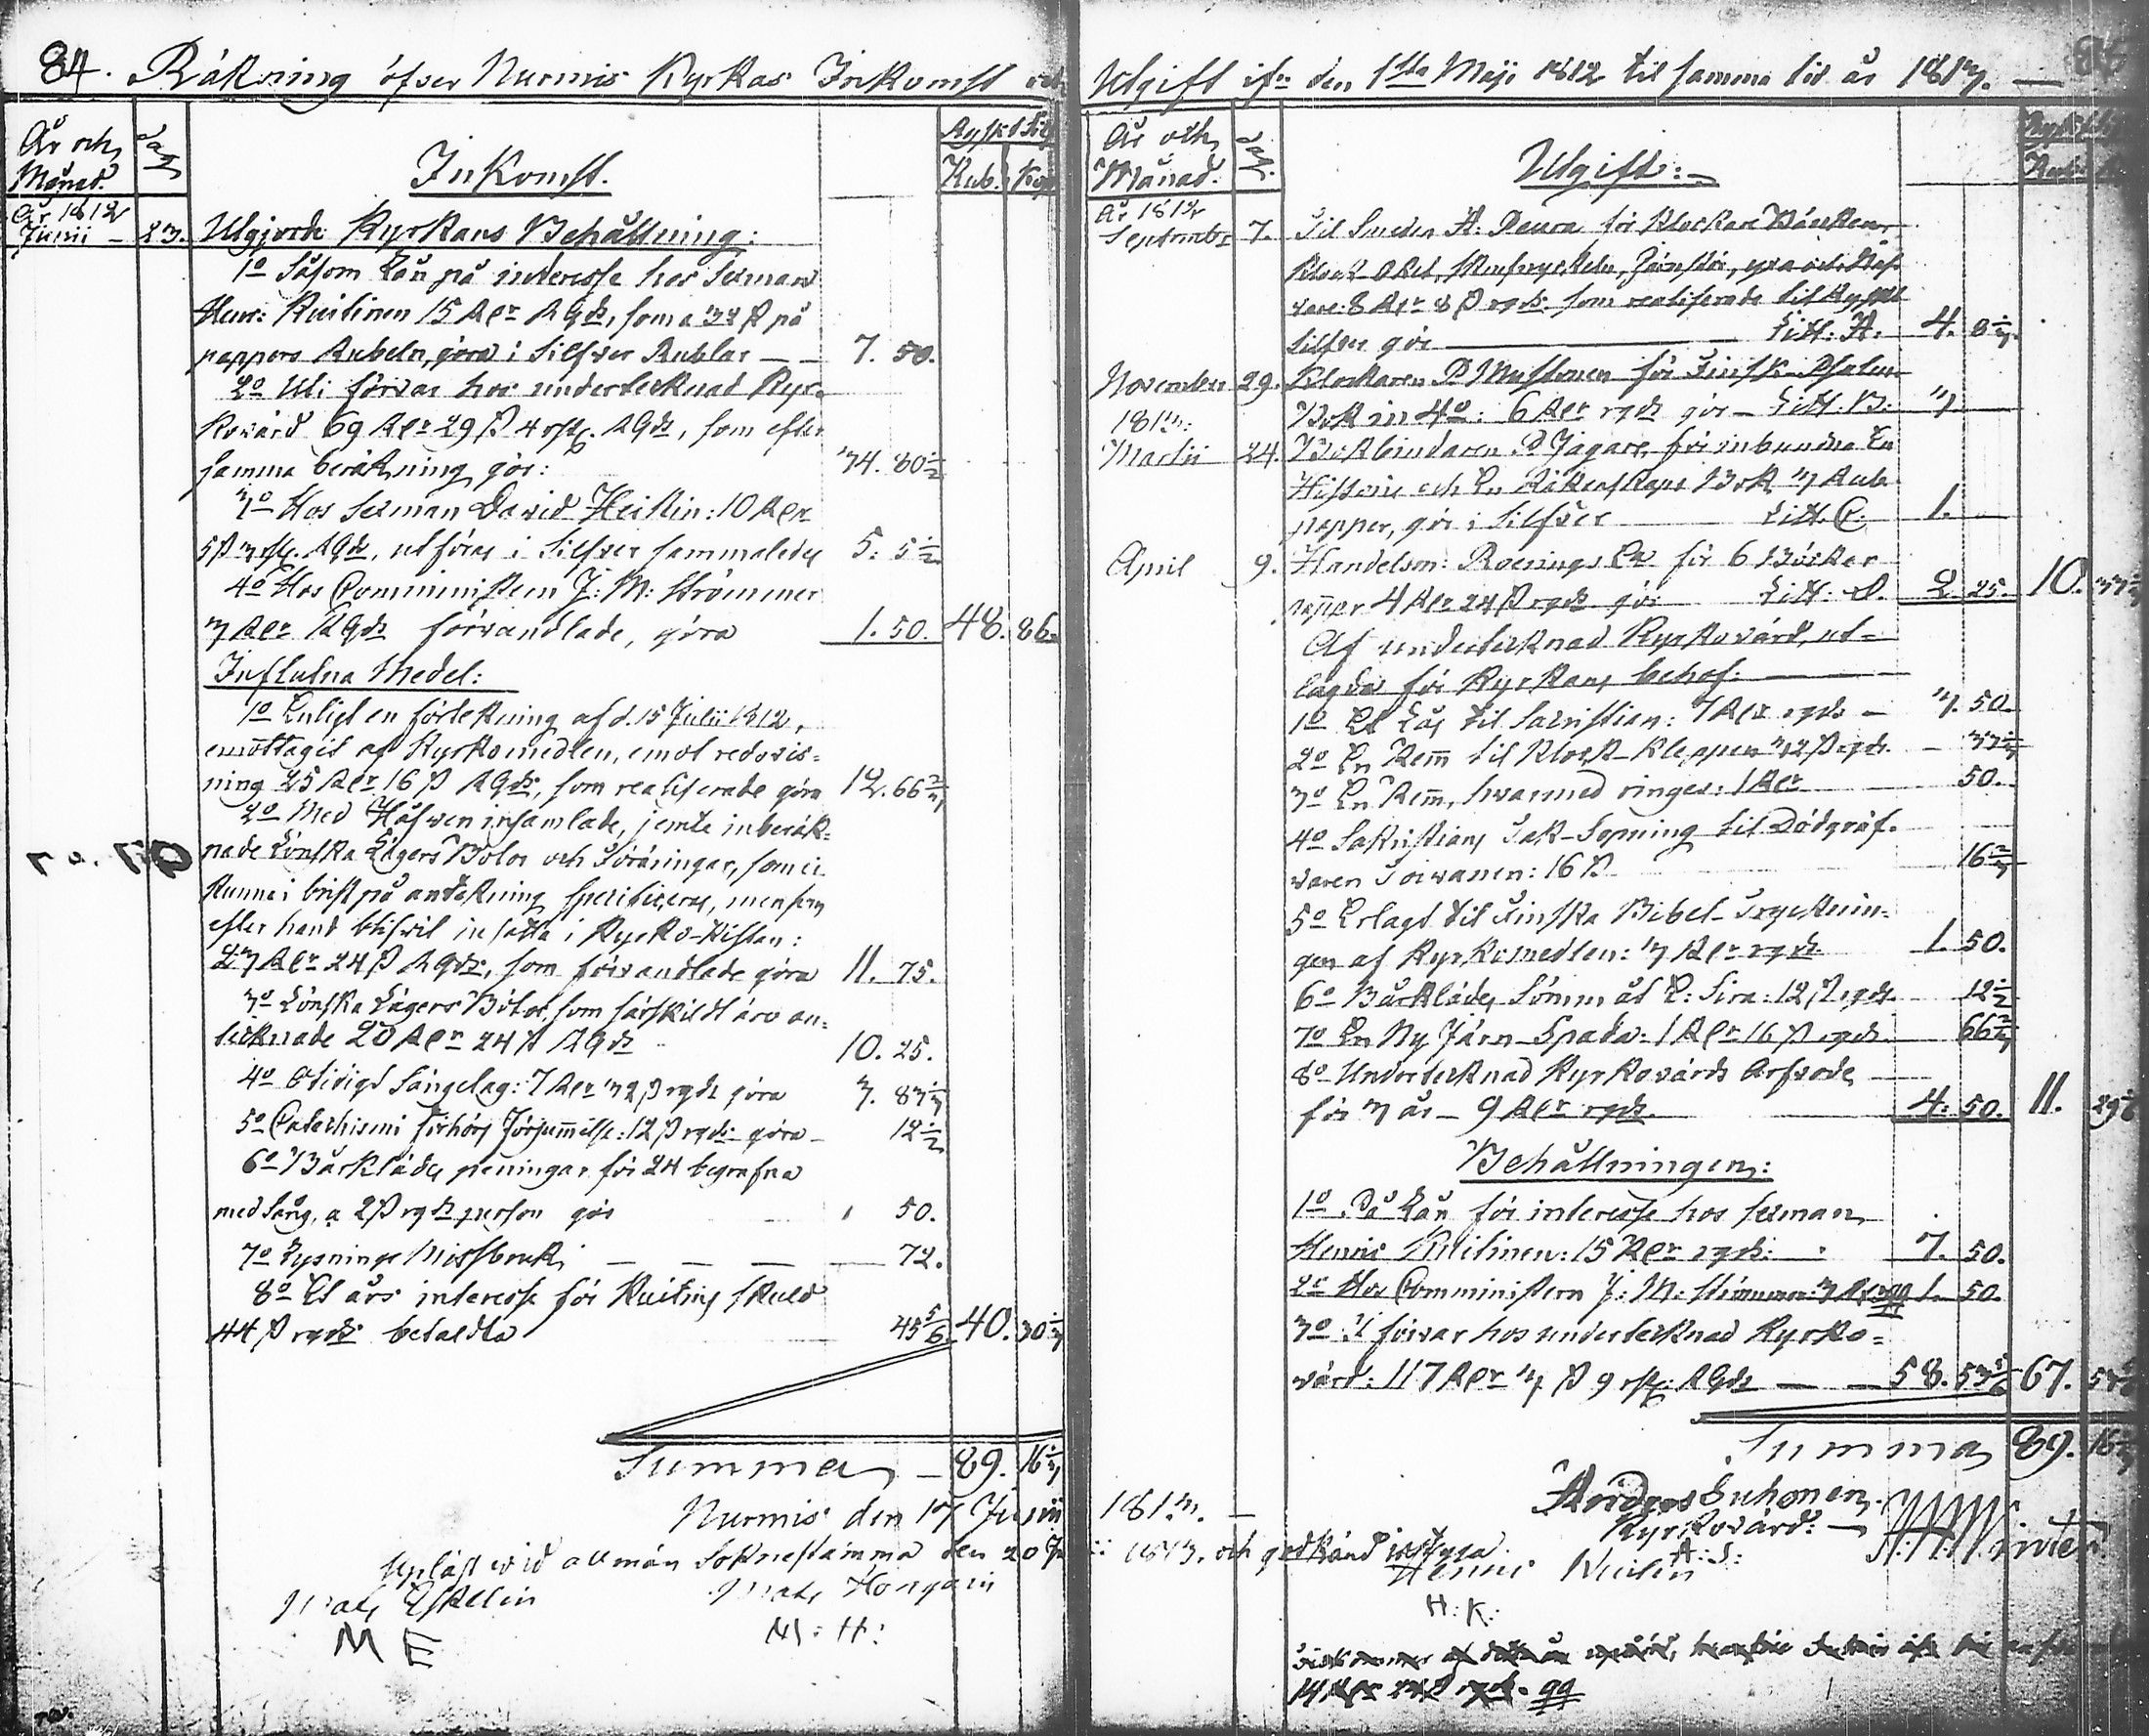 84. Räkning öfver Nurmis Kyrkas Inkomst och
År och Månad. Dag
Inkomst.
Ryskt Silf
Rub. Kop
År 1812
Junii – 23. Utgjorde Kyrkans Behållning:
1o Såsom Lån på interesse hos Sexman
Henr: Kuitinen 15 Rdr RGds, som a 32 ß på
pappers Rubeln, göra i Silfver Rublar — — 7. 50.
2o Uti förvar hos undertecknad Kyr-
kovärd 69 Rdr 29 ß 4 rst. RGds, som efter
samma beräkning gör: 34. 80 1/2
3o Hos Sexman David Heiskin: 10 Rdr
5 ß 3 rst. RGds, utföras i Silfver sammaledes 5. 5 1/2
4o Hos Comministern J: M: Strömmer
3 Rdr RGds förvandlade, göra 1. 50. 48. 86.
Influtna Medel:
1o Enligt en förtekning af d. 15 Julii 1812,
emottagit af Kyrkomedlen, emot redovis-
ning 25 Rdr 16 ß RGds, som realiserade göra 12. 66 2/3
2o Med Håfven insamlade, jemte inberäk-
nade Lönska Lägers Böter och Föräringar, som ei
kunna i brist på antekning specificeras, men som
efter hand blifvit insatta i Kyrko-Kistan:
23 Rdr 24 ß RGds, som förvandlade göra 11. 75.
3o Lönska Lägers Böter, som särskildt äro an-
tecknade 20 Rdr 24 ß RGds 10. 25.
4o Otidigt Sängelag: 7 Rdr 32 ß rgds göra 3. 83 1/3
5o Catechismi förhörs Försummelse: 12 ß rgds göra – 12 1/2
6o Bårklädes peningar för 24 begrafna
med Sång, a 2 ß rgds person gör 50.
7o Lysnings Missbruk — — — 72.
8o Et års interesse för Kuitins skuld
44 ß rgds betaldta 45 5/6 40. 30 1/3
Summa — 89. 16 1/3
Nurmis den 17 Junii
Upläst wid allmän Soknestämma den 20 J
Mats Eskelin Mats Hongain
M E M: H:
Utgift ifr. den 1sta Maji 1812 til samma tid år 1813. — 85
År och Månad. Dag.
Utgift: –
År 1812
September 7. Til Smeden A: Deura för Klockare
4. 8 1/3
silfver gör — Litt: A.
November 29. Klockaren P Mustonen för Finsk Psalm
Bok in 4o: 6 Rdr rgds gör – Litt: B: 3
1813:
Martii 24. Bokbindaren P Jägare, för inbundna En
Historie och En Räkenskaps Bok 3 Rub
papper, gör i Silfver — Litt. C. 1.
April 9. Handelsm: Roenings En för 6 Böcker
papper 4 Rdr 24 ß rgds gör Litt: D. 2 25. 10. 33 1/3
Af undertecknad Kyrkovärd, ut-
lagde för Kyrkans behof: —
1o Et Lås til Sacristian: 7 Rdr rgds – 3. 50
2o En Rem til Klock-Kleppen 32 ß rgds. – 33 1/3
3o En Rem, hvarmed ringes: 1 Rdr 50.
4o Sakristians Tak-Sopning til Dödgräf-
varen Toivanen: 16 ß 16 2/3
5o Erlagt til Finska Bibel-Trycknin-
gen af Kyrkomedlen: 3 Rdr rgds 1. 50.
6o Bårklädes Sömm åt L: Sira: 12 ß rgds. 12 1/2
7o En Ny Järn-Spada: 1 Rdr 16 ß rgds 66 2/3
8o Undertecknad Kyrkovärds Arfvode
för 3 år – 9 Rdr rgds. 4. 50. 11. 29 1/6
Behållningen:
1o På Lån för interesse hos Sexman
Henric Kuitinen: 15 Rdr rgds: 7. 50.
2o Hos Comministern J: M: Strömmer: 3 Rdr rgds 1. 50.
3o I förvar hos undertecknad Kyrko-
värd: 117 Rdr 3 ß 9 rst: RGds — — 58. 53 5/6 67. 53
Summa 89. 16 1/3
Andreas Suhonen
1813. — Kyrkovärd: —
A: S:
1813, och godkänd
Henric Kuitin
H: K: